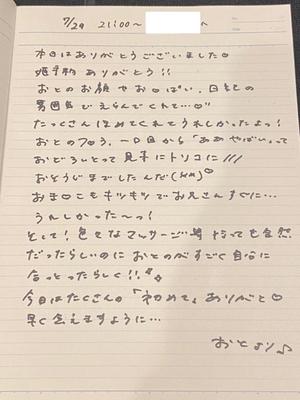 7/29 21:00～ へ
本日はありがとうございました♡
ありがとう!!
おとのお顔やおっぱい、日記の
雰囲気でえらんでくれて…♡
たっくさんほめてくれてうれしかったよっ!
おとのフ○ラ、一口目から「ああやばい」って
おどろいとって見事にトリコに///
おそうじまでしたんだ
おま○こもキツキツでお兄さんすぐに…
うれしかった～っ!
そして!色々なマッサージ 持っても全然
だったらしいのにおとのがすごく自分に
合っとったらしく!!
今日はたくさんの「初めて」ありがと♡
早く会えますように…
おとより♪